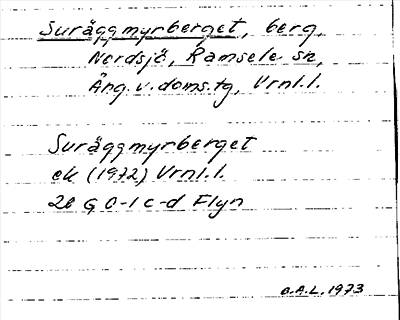 Suräggmyrberget, berg,
Nordsjö, Ramsele sn,
Ång. v. doms.tg, Vrnl.l.
Suräggmyrberget
ek (1972) Vrnl.l.
20 G 0-1 c-d Flyn
O.A.L. 1973